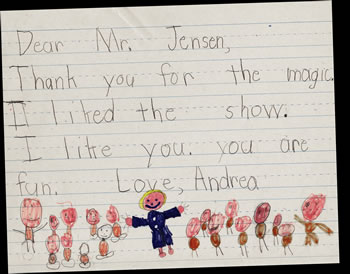 Dear Mr. Jensen,
Thank you for the magic.
I liked the show.
I like you. you are
fun. Love, Andrea